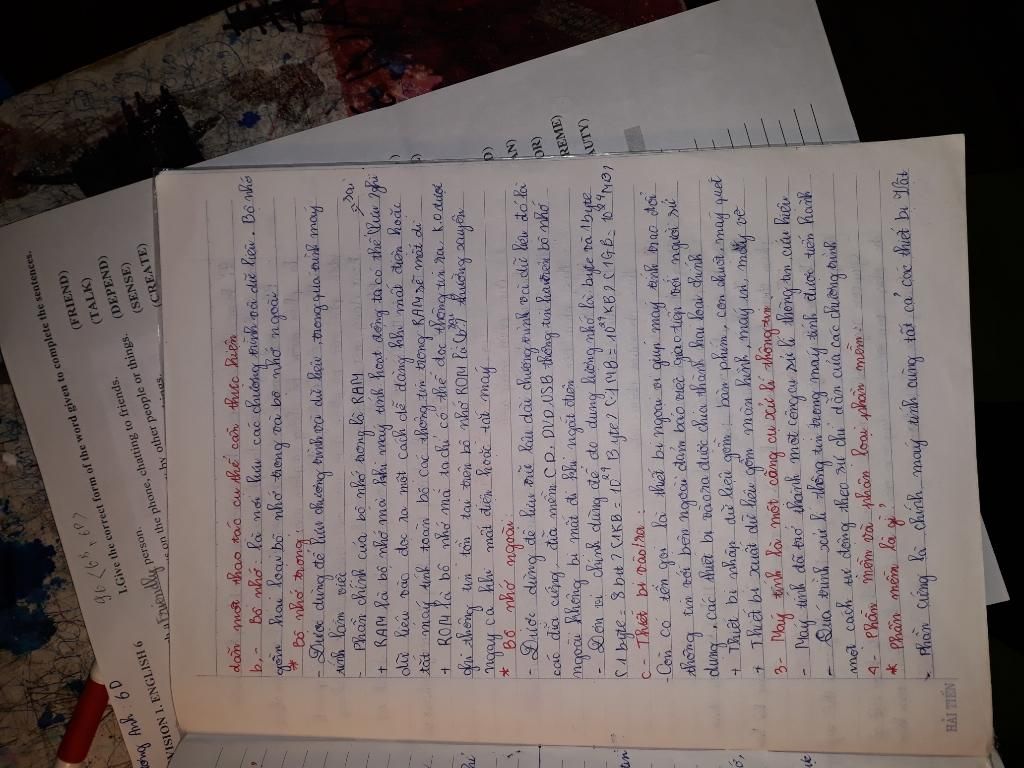 gb (6B, 6P)
ương Anh : 6D
VISION 1. ENGLISH 6
I.Give the correct form of the word given to complete the sentences.
Friendly person. (FRIEND)
on the phone, chatting to friends. (TALK)
by other people or things. (DEPEND)
(SENSE)
(CREATE)
D)
AN)
OR)
REME)
AUTY)
dẫn mọi thao tác cụ thể cần thực hiện
b - Bộ nhớ: là nơi lưu các chương trình và dữ liệu. Bộ nhớ
gồm hai loại bộ nhớ trong và bộ nhớ ngoài
* Bộ nhớ trong:
- Được dùng để lưu chương trình và dữ liệu trong quá trình máy
tính làm việc
- Phần chính của bộ nhớ trong là RAM
+ RAM là bộ nhớ mà khi máy tính hoạt động ta có thể lưu, ghi
dữ liệu và đọc ra một cách dễ dàng khi mất điện hoặc
tắt máy tính toàn bộ các thông tin trong RAM sẽ mất đi
+ ROM là bộ nhớ mà ta chỉ có thể đọc thông tin ra. K.o được
ghi thông tin tồn tại trên bộ nhớ ROM là thường xuyên
ngay cả khi mất điện hoặc tắt máy
* Bộ nhớ ngoài:
- Được dùng để lưu trữ lâu dài chương trình và dữ liệu đó là
các đĩa cứng, đĩa mềm CD. DVD USB thông tin lưu trên bộ nhớ
ngoài không bị mất đi khi ngắt điện
- Đơn vị chính dùng để đo dung lượng nhớ là byte và 1 byte
(1 byte = 8 bit) (1KB = 1024 Byte) (1MB = 1024 KB) (1GB = 1024 MB)
c - Thiết bị vào/ra:
- Còn có tên gọi là thiết bị ngoại vi giúp máy tính trao đổi
thông tin với bên ngoài đảm bảo việc giao tiếp với người sử
dụng, các thiết bị vào/ra được chia thành hai loại chính
+ Thiết bị nhập dữ liệu gồm: bàn phím, con chuột, máy quét
+ Thiết bị xuất dữ liệu gồm màn hình, máy in, máy vẽ
3 - Máy tính là một công cụ xử lí thông tin
- Máy tính đã trở thành một công cụ xử lí thông tin hữu hiệu
- Quá trình xử lí thông tin trong máy tính được tiến hành
một cách tự động theo sự chỉ dẫn của các chương trình
4 - Phần mềm và phân loại phần mềm:
* Phần mềm là gì?
- Phần cứng là chính máy tính cùng tất cả các thiết bị vật
HẢI TIẾN